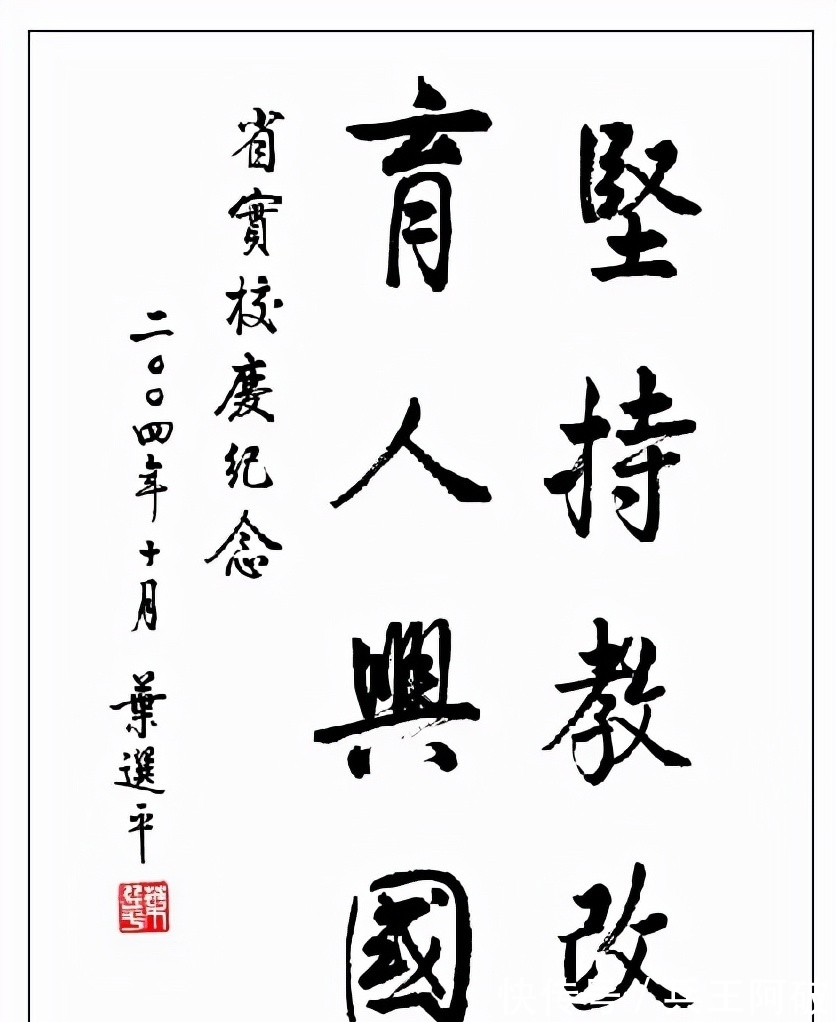 堅持教改
育人興國
省實校慶紀念
二〇〇四年十月 葉選平